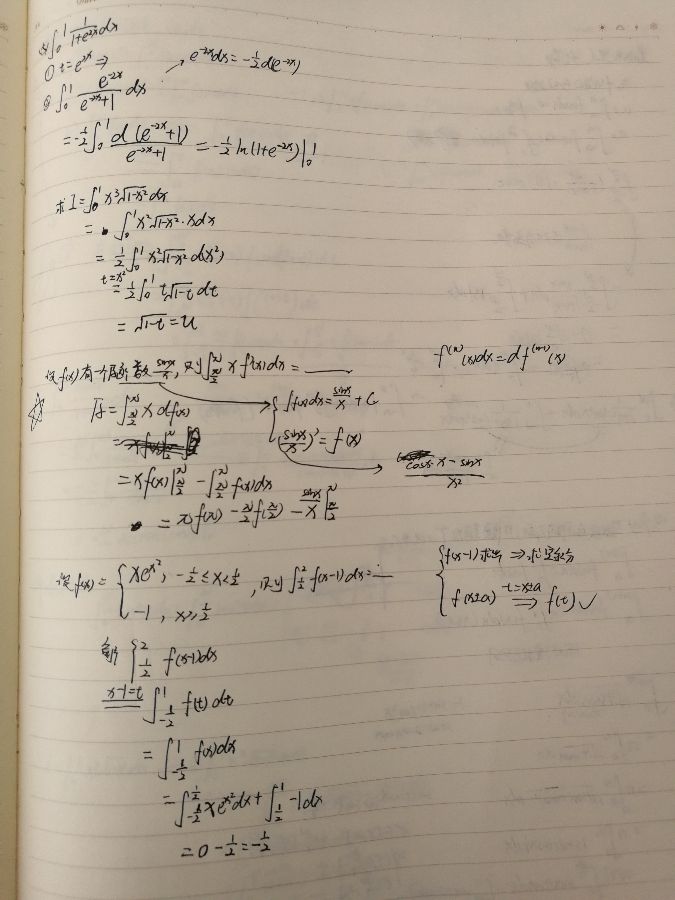 ∫₀¹ 1/(1+e^{2x}) dx
① t=e^{2x} ⇒
② ∫₀¹ e^{-2x}/(e^{-2x}+1) dx → e^{-2x}dx = -1/2 d(e^{-2x})
= -1/2 ∫₀¹ d(e^{-2x}+1)/(e^{-2x}+1) = -1/2 ln(1+e^{-2x})|₀¹
求 I=∫₀¹ x³√(1-x²) dx
= ∫₀¹ x²√(1-x²)·xdx
= 1/2 ∫₀¹ x²√(1-x²) d(x²)
t=x² = 1/2 ∫₀¹ t√(1-t) dt
= √(1-t)=u
设f(x)有一个原函数 sinx/x, 则∫_{π/2}^{π} x f'(x)dx = ____
f^{(n)}(x)dx = df^{(n-1)}(x)
☆ 原=∫_{π/2}^{π} x df(x)
{ ∫f(x)dx = sinx/x + C
(sinx/x)' = f(x) → (cosx·x - sinx)/x²
= xf(x)|_{π/2}^{π} - ∫_{π/2}^{π} f(x)dx
= πf(π) - π/2 f(π/2) - sinx/x |_{π/2}^{π}
设f(x)= { xe^{x²}, -1/2≤x<1/2
-1, x≥1/2
, 则∫_{1/2}^{2} f(x-1)dx=__
{ f(x-1)求出 ⇒ 求定积分
f(x±a) t=x±a ⇒ f(t) ✓
解 ∫_{1/2}^{2} f(x-1)dx
x-1=t ∫_{-1/2}^{1} f(t)dt
= ∫_{-1/2}^{1} f(x)dx
= ∫_{-1/2}^{1/2} xe^{x²}dx + ∫_{1/2}^{1} -1dx
= 0 - 1/2 = -1/2